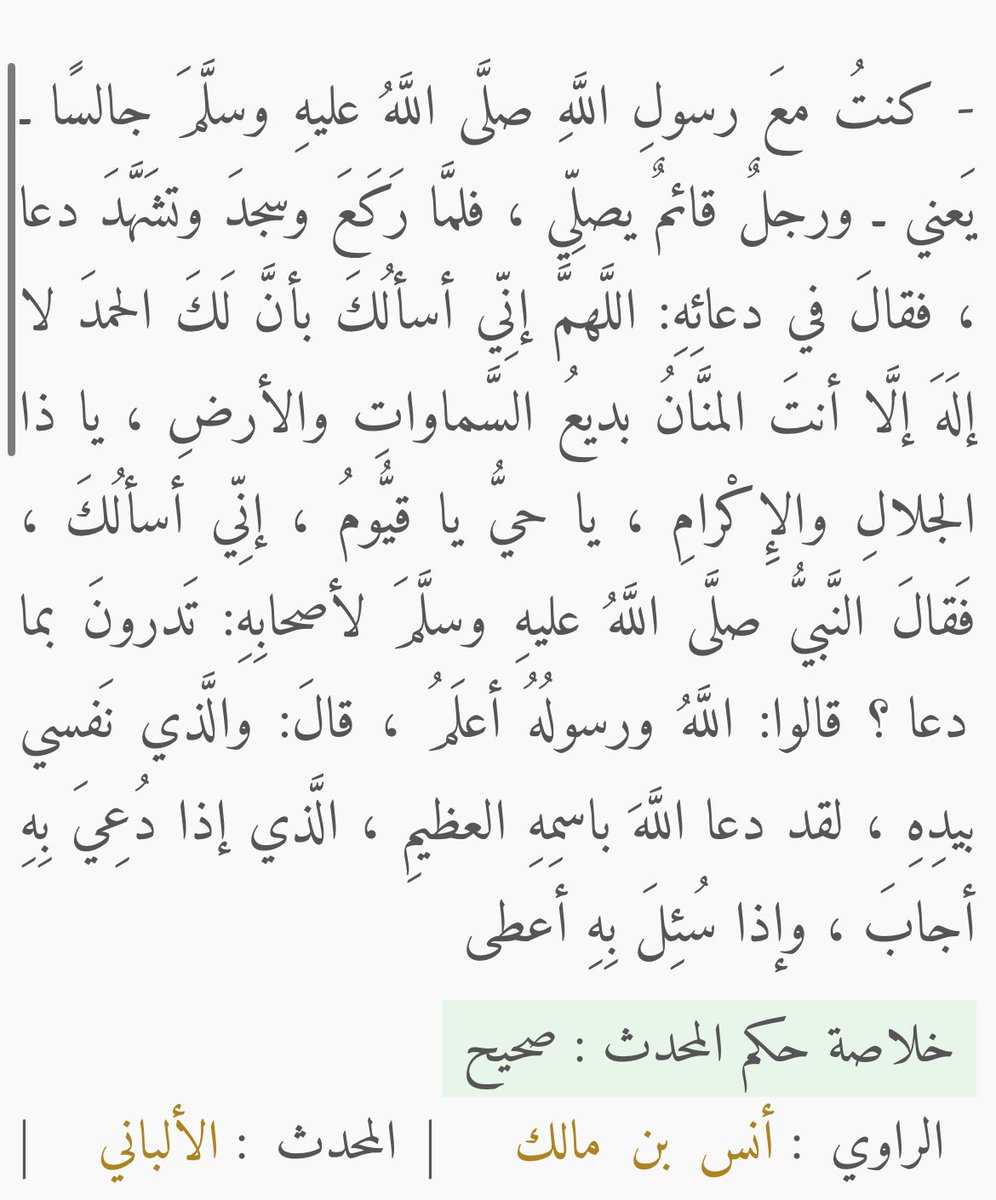 - كنتُ معَ رسولِ اللَّهِ صلَّى اللَّهُ عليهِ وسلَّمَ جالسًا ـ
يَعني ـ ورجلٌ قائمٌ يصلِّي ، فلمَّا رَكَعَ وسجدَ وتشَهَّدَ دعا
، فقالَ في دعائِهِ: اللَّهمَّ إنِّي أسألُكَ بأنَّ لَكَ الحمدَ لا
إلَهَ إلَّا أنتَ المنَّانُ بديعُ السَّماواتِ والأرضِ ، يا ذا
الجلالِ والإِكْرامِ ، يا حيُّ يا قيُّومُ ، إنِّي أسألُكَ ،
فَقالَ النَّبيُّ صلَّى اللَّهُ عليهِ وسلَّمَ لأصحابِهِ: تَدرونَ بما
دعا ؟ قالوا: اللَّهُ ورسولُهُ أعلَمُ ، قالَ: والَّذي نَفسي
بيدِهِ ، لقد دعا اللَّهَ باسمِهِ العظيمِ ، الَّذي إذا دُعِيَ بِهِ
أجابَ ، وإذا سُئِلَ بِهِ أعطى
خلاصة حكم المحدث : صحيح
الراوي : أنس بن مالك | المحدث : الألباني |